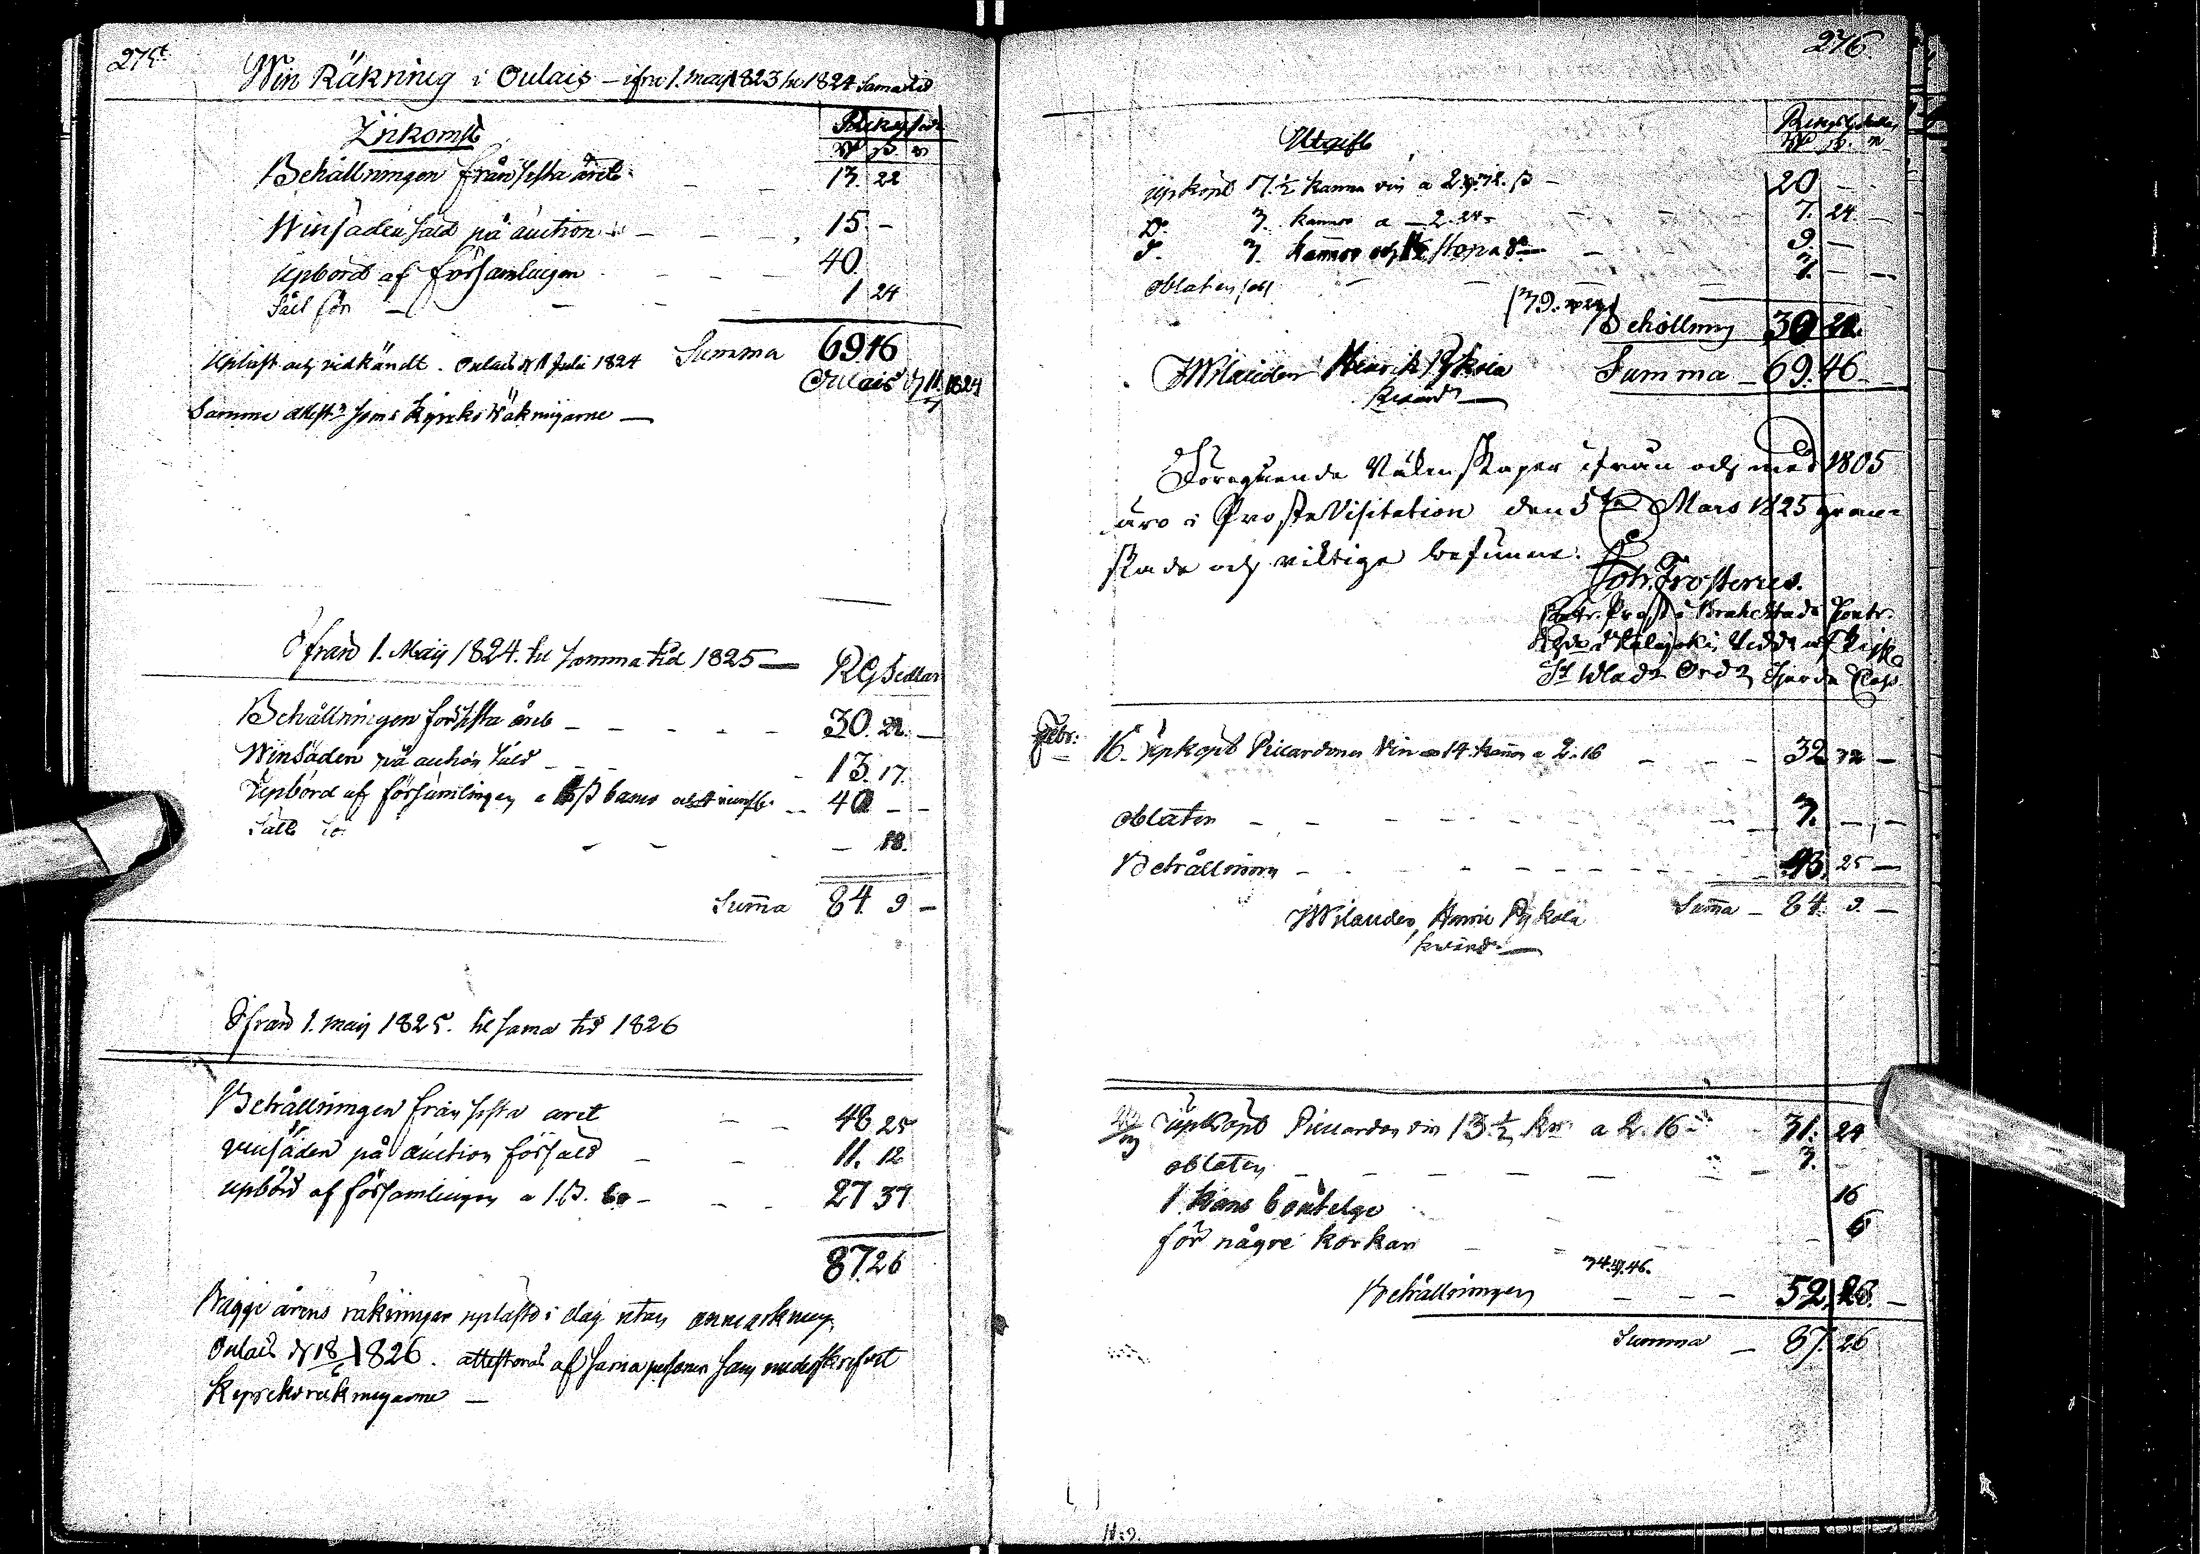 275
Win Räkning i Oulais – ifrån 1. maij 1823 til 1824 sama tid
Inkomst
Behållningen från sista året 13. 22
Winsäden såld på auction 15. –
Upbörd af församlingen 40.
1 24
Uplast och vidkändt. Oulais d 11 Juli 1824 Summa 69 46
Oulais d 11 1824
Samma attest som i Kyrko Räkningarne —
Ifrån 1. Maij 1824. til samma tid 1825 — RG Sedlar
Behållningen från sista året 30. 22. –
Winsäden på auction såld 13. 17.
Upbörd af församlingen a 40 – –
– 18.
Suma 84 9 –
Ifrån 1. maij 1825. til sama tid 1826
Behållningen från sista året 48 25
vinsäden på auction försåld 11. 12
upbörd af församlingen a 27 37
87 26
Bägge årens räkningar uplaste i dag utan anmärkning.
Oulais d 18 1826. attesteras af sama personer som underskrifvit
Kyrkoräkningarne —
276.
Utgift
Upköpt 7 1/2 kanna vin a 2 32. 20 –
Do 3. kannor a – 2. 24 7. 24. –
Do 3. kannor och 9. –
oblaten 3. – –
Behållning 30 22.
J Wilander Henrik Pykola Summa – 69. 46
kvärd —
Föregående Räkenskaper ifrån och med 1805
äro i Prosta Visitation den 5 Mars 1825 gran-
skade och riktige befunne.
Joh. Frosterus.
Contr. Prost i Brahestads Contr.
St Wlad. Ord. Fjerde Class
Febr: 16. Upkopt Piccardons Vin 14. kanor a 2. 16 32 32 –
oblaten 3. – –
Behållning 48. 25 –
J Wilander, Henric Pykola Suma – 84. 9. –
kvärd. —
Upköpt Piccardon vin 13 1/2 kr a 2. 16 31. 24
oblaten 3. –
1. kans boutelge 16
för någre korkar 6
34. 46.
Behållningen 52. 28. –
Summa – 87. 26